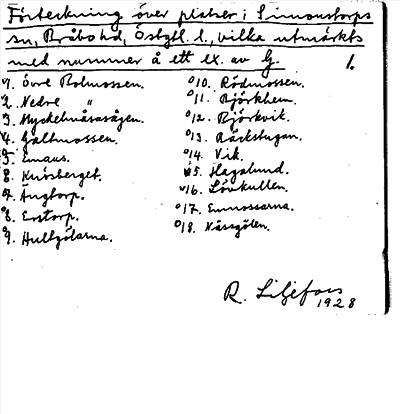 Förteckning över platser i Simonstorps
sn, Bråbo hd, Östgtl. l., vilka utmärkts
med nummer å ett ex. av G.
1.
1. Övre Bolmossen.
2. Nedre "
3. Myckelmåsasågen.
4. Galtmossen.
5. Emaus.
6. Knösberget.
7. Ängtorp.
8. Erstorp.
9. Hultgölarna.
10. Rödmossen.
11. Björkhem.
12. Björkvik.
13. Bäckstugan.
14. Vik.
15. Hagalund.
16. Lövkullen.
17. Emmossarna.
18. Nässgölen.
R. Liljefors
1928